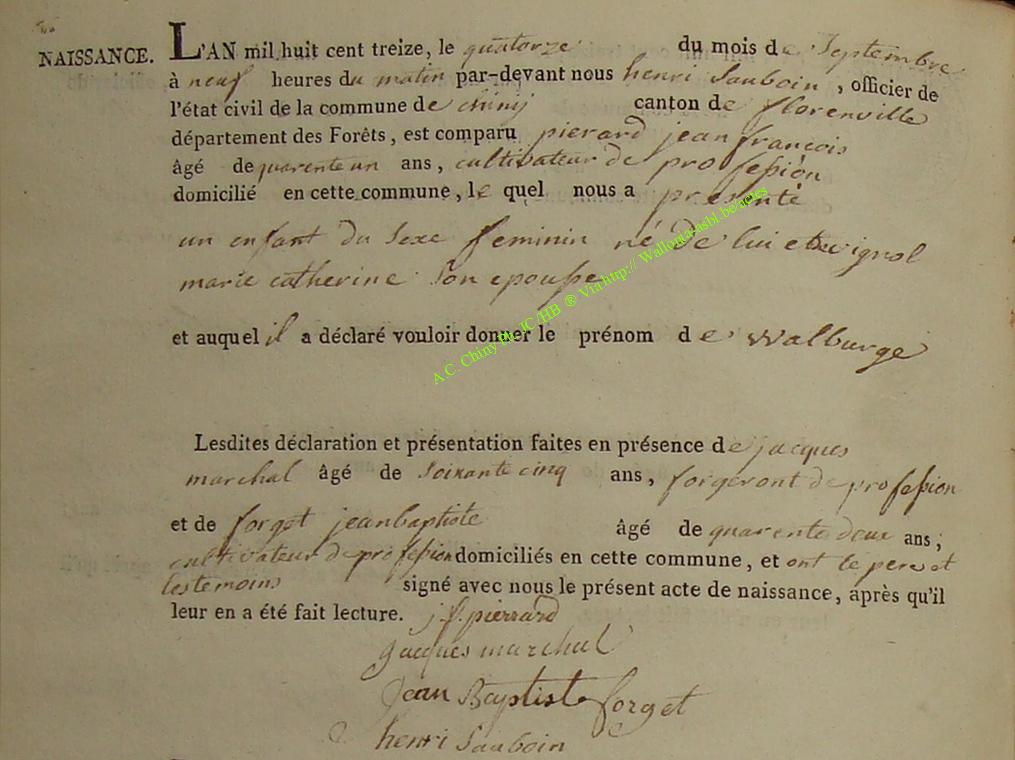 NAISSANCE. L'AN mil huit cent treize, le quatorze du mois de Septembre
à neuf heures du matin par-devant nous henri Sauboin, officier de
l'état civil de la commune de chinÿ canton de florenville
département des Forêts, est comparu pierard jean francois
âgé de quarente un ans, cultivateur de profession
domicilié en cette commune, le quel nous a presenté
un enfant du Sexe feminin né de lui et wignol
marie catherine Son epousse
et auquel il a déclaré vouloir donner le prénom de walburge
A.C. Chiny Ph. JC /HB ® Via http:// Wallonia-asbl.be/actes
Lesdites déclaration et présentation faites en présence de jacques
marchal âgé de Soixante cinq ans, forgeront de profession
et de forget jean baptiste âgé de quarente deux ans,
cultivateur de profession domiciliés en cette commune, et ont le pere et
les temoins signé avec nous le présent acte de naissance, après qu'il
leur en a été fait lecture. j. f. pierrard
jacques marchal
Jean Baptiste forget
henri Sauboin